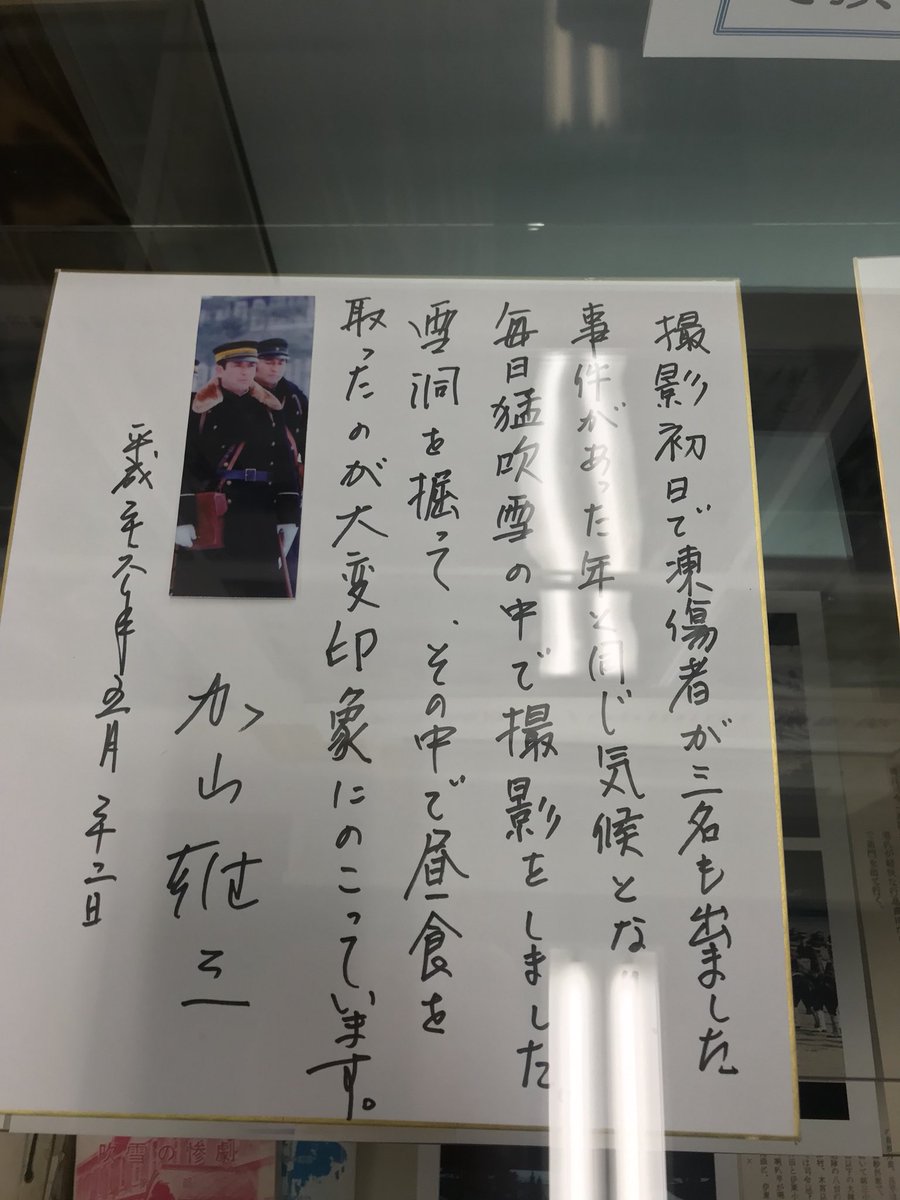 撮影初日で凍傷者が三名も出ました
事件があった年と同じ気候とな
毎日猛吹雪の中で撮影をしました
雪洞を掘って、その中で昼食を
取ったのが大変印象にのこっています。
加山雄三
平成二十六年五月二十二日
吹雪の惨劇